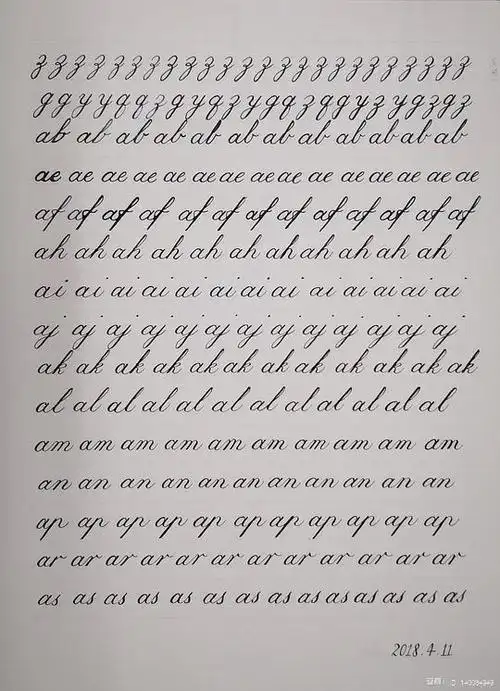 z z z z z z z z z z z z z z z z z z z z z z z z
g g y y q q z g y q z y g q z q g y z y g z g z
ab ab ab ab ab ab ab ab ab ab ab ab
ae ae ae ae ae ae ae ae ae ae ae ae ae ae ae
af af af af af af af af af af af af af
ah ah ah ah ah ah ah ah ah ah ah
ai ai ai ai ai ai ai ai ai ai ai ai ai
aj aj aj aj aj aj aj aj aj aj aj aj aj
ak ak ak ak ak ak ak ak ak ak ak ak
al al al al al al al al al al al al
am am am am am am am am am am
an an an an an an an an an an an
ap ap ap ap ap ap ap ap ap ap ap
ar ar ar ar ar ar ar ar ar ar ar ar
as as as as as as as as as as as as as
2018.4.11